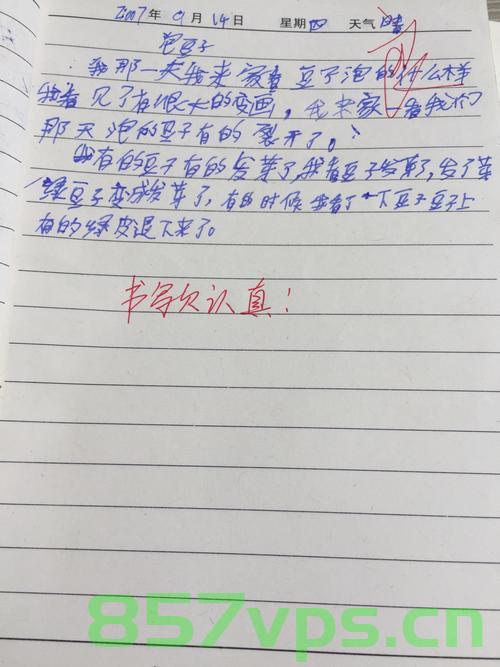 2007年9月14日 星期四 天气晴
泡豆子
我那一天我来家看豆子泡的什么样
我看见了有很大的变画，我来家看我们
那天泡的豆子有的裂开了。
有的豆子有的发芽了，我看豆子发芽了，发了芽
绿豆子变成发芽了，有的时候我看了一下豆子豆子上
有的绿皮退下来了。
书写欠认真！
857vps.cn